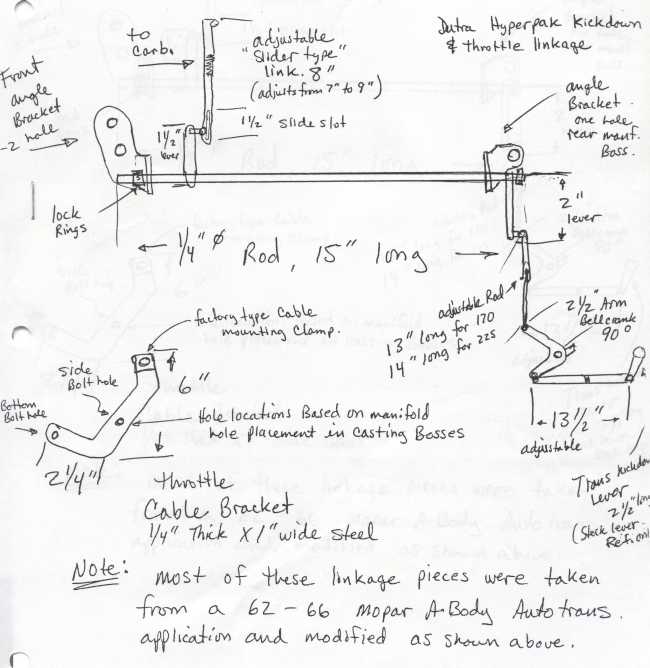 Dutra Hyperpak Kickdown
& throttle linkage
to
Carb.
adjustable
"Slider type"
link. 8"
(adjusts from 7" to 9")
1 1/2" Slide slot
1 1/2"
lever
Front
angle
Bracket
-2 hole
angle
Bracket -
one hole
rear manf.
Boss.
lock
Rings
2"
lever
1/4" Ø Rod, 15" long
adjustable Rod
13" long for 170
14" long for 225
2 1/2" Arm
Bellcrank
90°
13 1/2"
adjustable
Trans kickdown
Lever
2 1/2" long
(Stock lever
factory type Cable
mounting Clamp.
side
Bolt hole
Bottom
Bolt hole
6"
Hole locations Based on manifold
hole placement in Casting Bosses
2 1/4"
Throttle
Cable Bracket
1/4" Thick X 1" wide Steel
Note: most of these linkage pieces were taken
from a 62-66 Mopar A-Body Auto trans.
application and modified as shown above.